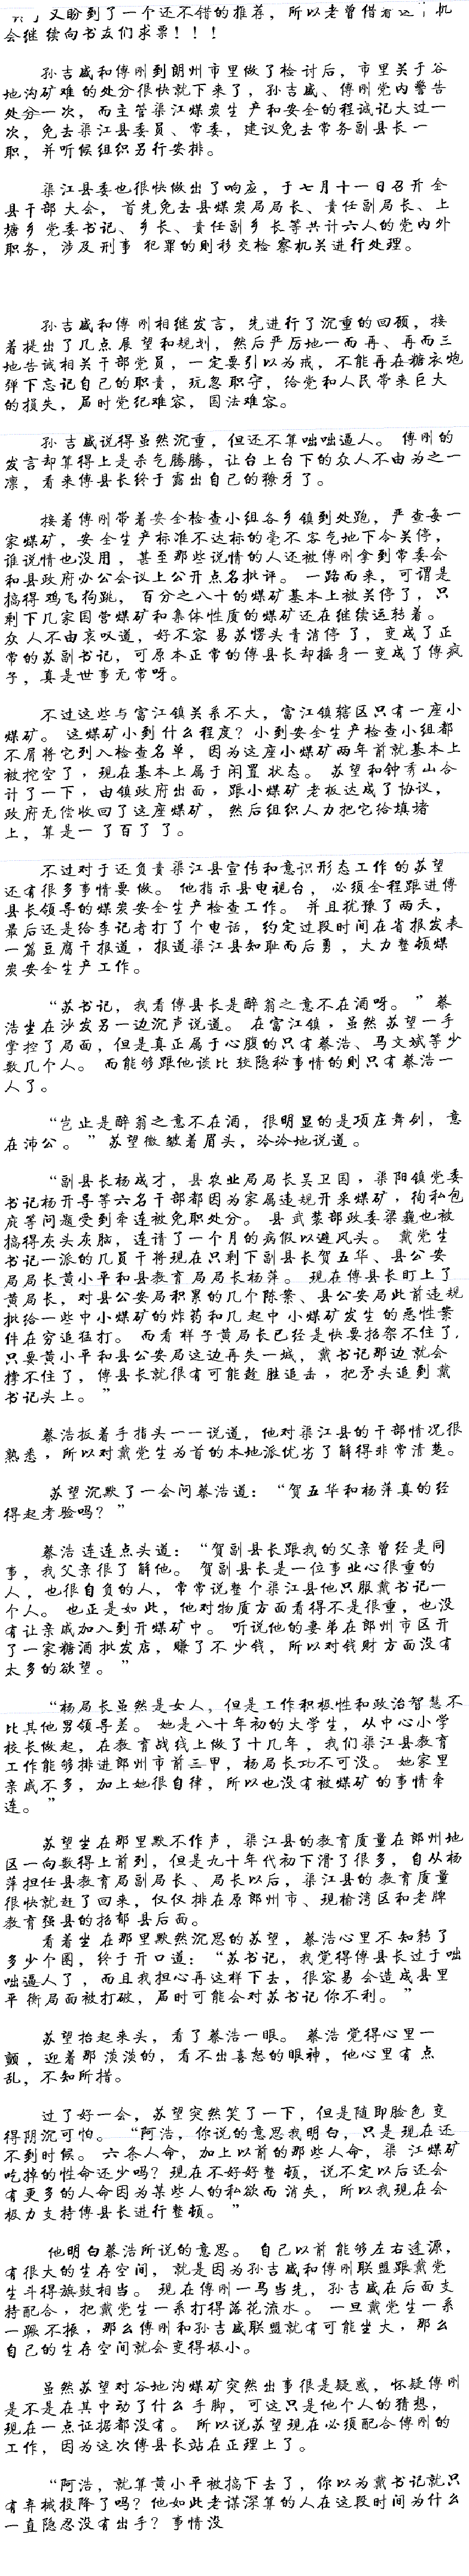 又盼到了一个还不错的推荐，所以老曾借着这个机
会继续向书友们求票！！！
孙吉威和傅刚到朗州市里做了检讨后，市里关于谷
地沟矿难的处分很快就下来了，孙吉威、傅刚党内警告
处分一次，而主管渠江煤炭生产和安全的程诚记大过一
次，免去渠江县委员、常委，建议免去常务副县长一
职，并听候组织另行安排。
渠江县委也很快做出了响应，于七月十一日召开全
县干部大会，首先免去县煤炭局局长、责任副局长、上
塘乡党委书记、乡长、责任副乡长等共计六人的党内外
职务，涉及刑事犯罪的则移交检察机关进行处理。
孙吉威和傅刚相继发言，先进行了沉重的回顾，接
着提出了几点展望和规划，然后严厉地一而再、再而三
地告诫相关干部党员，一定要引以为戒，不能再在糖衣炮
弹下忘记自己的职责，玩忽职守，给党和人民带来巨大
的损失，届时党纪难容，国法难容。
孙吉威说得虽然沉重，但还不算咄咄逼人。傅刚的
发言却算得上是杀气腾腾，让台上台下的众人不由为之一
凛，看来傅县长终于露出自己的獠牙了。
接着傅刚带着安全检查小组各乡镇到处跑，严查每一
家煤矿，安全生产标准不达标的毫不客气地下令关停，
谁说情也没用，甚至那些说情的人还被傅刚拿到常委会
和县政府办公会议上公开点名批评。一路而来，可谓是
搞得鸡飞狗跳，百分之八十的煤矿基本上被关停了，只
剩下几家国营煤矿和集体性质的煤矿还在继续运转着。
众人不由哀叹道，好不容易苏愣头青消停了，变成了正
常的苏副书记，可原本正常的傅县长却摇身一变成了傅疯
子，真是世事无常呀。
不过这些与富江镇关系不大，富江镇辖区只有一座小
煤矿。这煤矿小到什么程度？小到安全生产检查小组都
不屑将它列入检查名单，因为这座小煤矿两年前就基本上
被挖空了，现在基本上属于闲置状态。苏望和钟秀山合
计了一下，由镇政府出面，跟小煤矿老板达成了协议，
政府无偿收回了这座煤矿，然后组织人力把它给填堵
上，算是一了百了了。
不过对于还负责渠江县宣传和意识形态工作的苏望
还有很多事情要做。他指示县电视台，必须全程跟进傅
县长领导的煤炭安全生产检查工作。并且犹豫了两天，
最后还是给李记者打了个电话，约定过段时间在省报发表
一篇豆腐干报道，报道渠江县知耻而后勇，大力整顿煤
炭安全生产工作。
“苏书记，我看傅县长是醉翁之意不在酒呀。”蔡
浩坐在沙发另一边沉声说道。在富江镇，虽然苏望一手
掌控了局面，但是真正属于心腹的只有蔡浩、马文斌等少
数几个人。而能够跟他谈比较隐秘事情的则只有蔡浩一
人了。
“岂止是醉翁之意不在酒，很明显的是项庄舞剑，意
在沛公。”苏望微皱着眉头，冷冷地说道。
“副县长杨成才，县农业局局长吴卫国，渠阳镇党委
书记杨开寻等六名干部都因为家属违规开采煤矿，徇私包
庇等问题受到牵连被免职处分。县武装部政委梁巍也被
搞得灰头灰脑，连请了一个月的病假以避风头。戴党生
书记一派的几员干将现在只剩下副县长贺五华、县公安
局局长黄小平和县教育局局长杨萍。现在傅县长盯上了
黄局长，对县公安局积累的几个陈案、县公安局此前违规
批给一些中小煤矿的炸药和几起中小煤矿发生的恶性案
件在穷追猛打。而看样子黄局长已经是快要招架不住了，
只要黄小平和县公安局这边再失一城，戴书记那边就会
撑不住了，傅县长就很有可能趁胜追击，把矛头追到戴
书记头上。”
蔡浩扳着手指头一一说道，他对渠江县的干部情况很
熟悉，所以对戴党生为首的本地派优劣了解得非常清楚。
苏望沉默了一会问蔡浩道：“贺五华和杨萍真的经
得起考验吗？”
蔡浩连连点头道：“贺副县长跟我的父亲曾经是同
事，我父亲很了解他。贺副县长是一位事业心很重的
人，也很自负的人，常常说整个渠江县他只服戴书记一
个人。也正是如此，他对物质方面看得不是很重，也没
有让亲戚加入到开煤矿中。听说他的妻弟在郎州市区开
了一家糖酒批发店，赚了不少钱，所以对钱财方面没有
太多的欲望。”
“杨局长虽然是女人，但是工作积极性和政治智慧不
比其他男领导差。她是八十年初的大学生，从中心小学
校长做起，在教育战线上做了十几年，我们渠江县教育
工作能够排进郎州市前三甲，杨局长功不可没。她家里
亲戚不多，加上她很自律，所以也没有被煤矿的事情牵
连。”
苏望坐在那里默不作声，渠江县的教育质量在郎州地
区一向数得上前列，但是九十年代初下滑了很多，自从杨
萍担任县教育局副局长、局长以后，渠江县的教育质量
很快就赶了回来，仅仅排在原郎州市、现榆湾区和老牌
教育强县的招郁县后面。
看着坐在那里默然沉思的苏望，蔡浩心里不知转了
多少个圈，终于开口道：“苏书记，我觉得傅县长过于咄
咄逼人了，而且我担心再这样下去，很容易会造成县里
平衡局面被打破，届时可能会对苏书记你不利。”
苏望抬起来头，看了蔡浩一眼。蔡浩觉得心里一
颤，迎着那淡淡的，看不出喜怒的眼神，他心里有点
乱，不知所措。
过了好一会，苏望突然笑了一下，但是随即脸色变
得阴沉可怕。“阿浩，你说的意思我明白，只是现在还
不到时候。六条人命，加上以前的那些人命，渠江煤矿
吃掉的性命还少吗？现在不好好整顿，说不定以后还会
有更多的人命因为某些人的私欲而消失，所以我现在会
极力支持傅县长进行整顿。”
他明白蔡浩所说的意思。自己以前能够左右逢源，
有很大的生存空间，就是因为孙吉威和傅刚联盟跟戴党
生斗得旗鼓相当。现在傅刚一马当先，孙吉威在后面支
持配合，把戴党生一系打得落花流水。一旦戴党生一系
一蹶不振，那么傅刚和孙吉威联盟就有可能坐大，那么
自己的生存空间就会变得极小。
虽然苏望对谷地沟煤矿突然出事很是疑惑，怀疑傅刚
是不是在其中动了什么手脚，可这只是他个人的猜想，
现在一点证据都没有。所以说苏望现在必须配合傅刚的
工作，因为这次傅县长站在正理上了。
“阿浩，就算黄小平被搞下去了，你以为戴书记就只
有弃械投降了吗？他如此老谋深算的人在这段时间为什么
一直隐忍没有出手？事情没